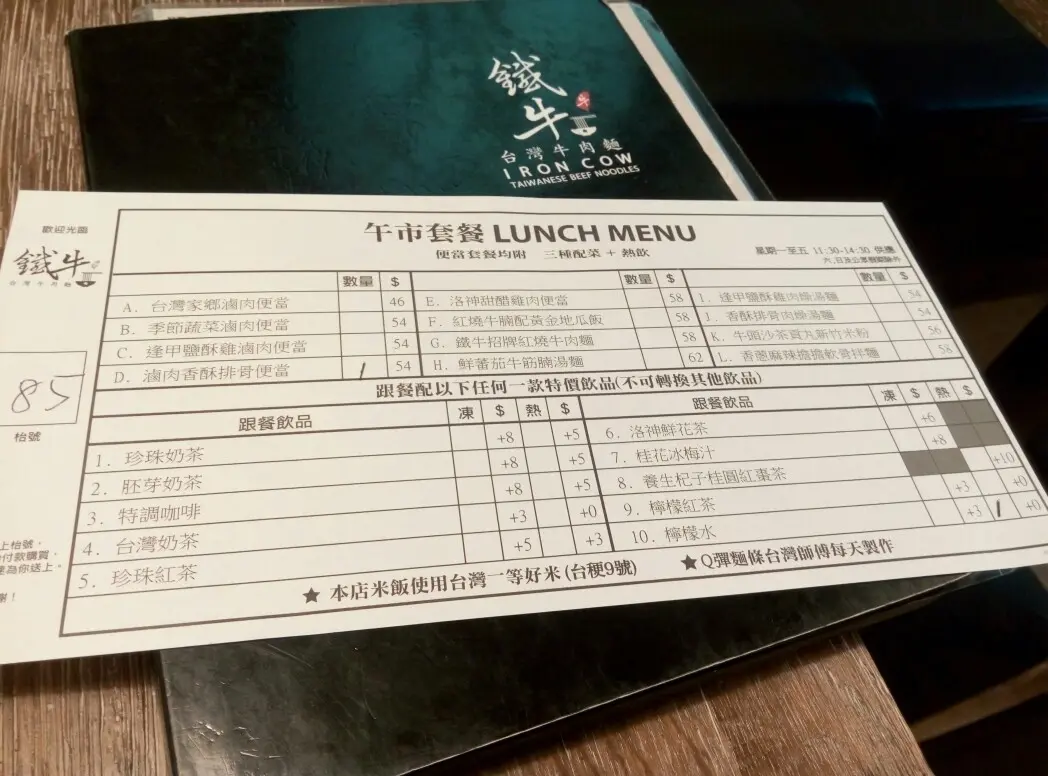 鐵牛
牛
台灣牛肉麵
IRON COW
TAIWANESE BEEF NOODLES
歡迎光臨
鐵牛
台灣牛肉麵
85
枱號
上枱號，
付款購買，
為你送上。
謝！
午市套餐 LUNCH MENU
便當套餐均附 三種配菜 + 熱飲
星期一至五 11:30-14:30 供應
六,日及公眾假期除外
數量 $ 數量 $ 數量 $
A. 台灣家鄉滷肉便當 46
B. 季節蔬菜滷肉便當 54
C. 逢甲鹽酥雞滷肉便當 54
D. 滷肉香酥排骨便當 1 54
E. 洛神甜醋雞肉便當 58
F. 紅燒牛腩配黃金地瓜飯 58
G. 鐵牛招牌紅燒牛肉麵 58
H. 鮮蕃茄牛筋腩湯麵 62
I. 逢甲鹽酥雞肉燥湯麵 54
J. 香酥排骨肉燥湯麵 54
K. 牛頭沙茶貢丸新竹米粉 56
L. 香蔥麻辣擔擔軟骨拌麵 58
跟餐配以下任何一款特價飲品(不可轉換其他飲品)
跟餐飲品 凍 $ 熱 $
1. 珍珠奶茶 +8 +5
2. 胚芽奶茶 +8 +5
3. 特調咖啡 +8 +5
4. 台灣奶茶 +3 +0
5. 珍珠紅茶 +5 +3
跟餐飲品 凍 $ 熱 $
6. 洛神鮮花茶 +6
7. 桂花冰梅汁 +8
8. 養生杞子桂圓紅棗茶 +10
9. 檸檬紅茶 +3 +0
10. 檸檬水 +3 1 +0
★ 本店米飯使用台灣一等好米 (台稉9號) ★Q彈麵條台灣師傅每天製作